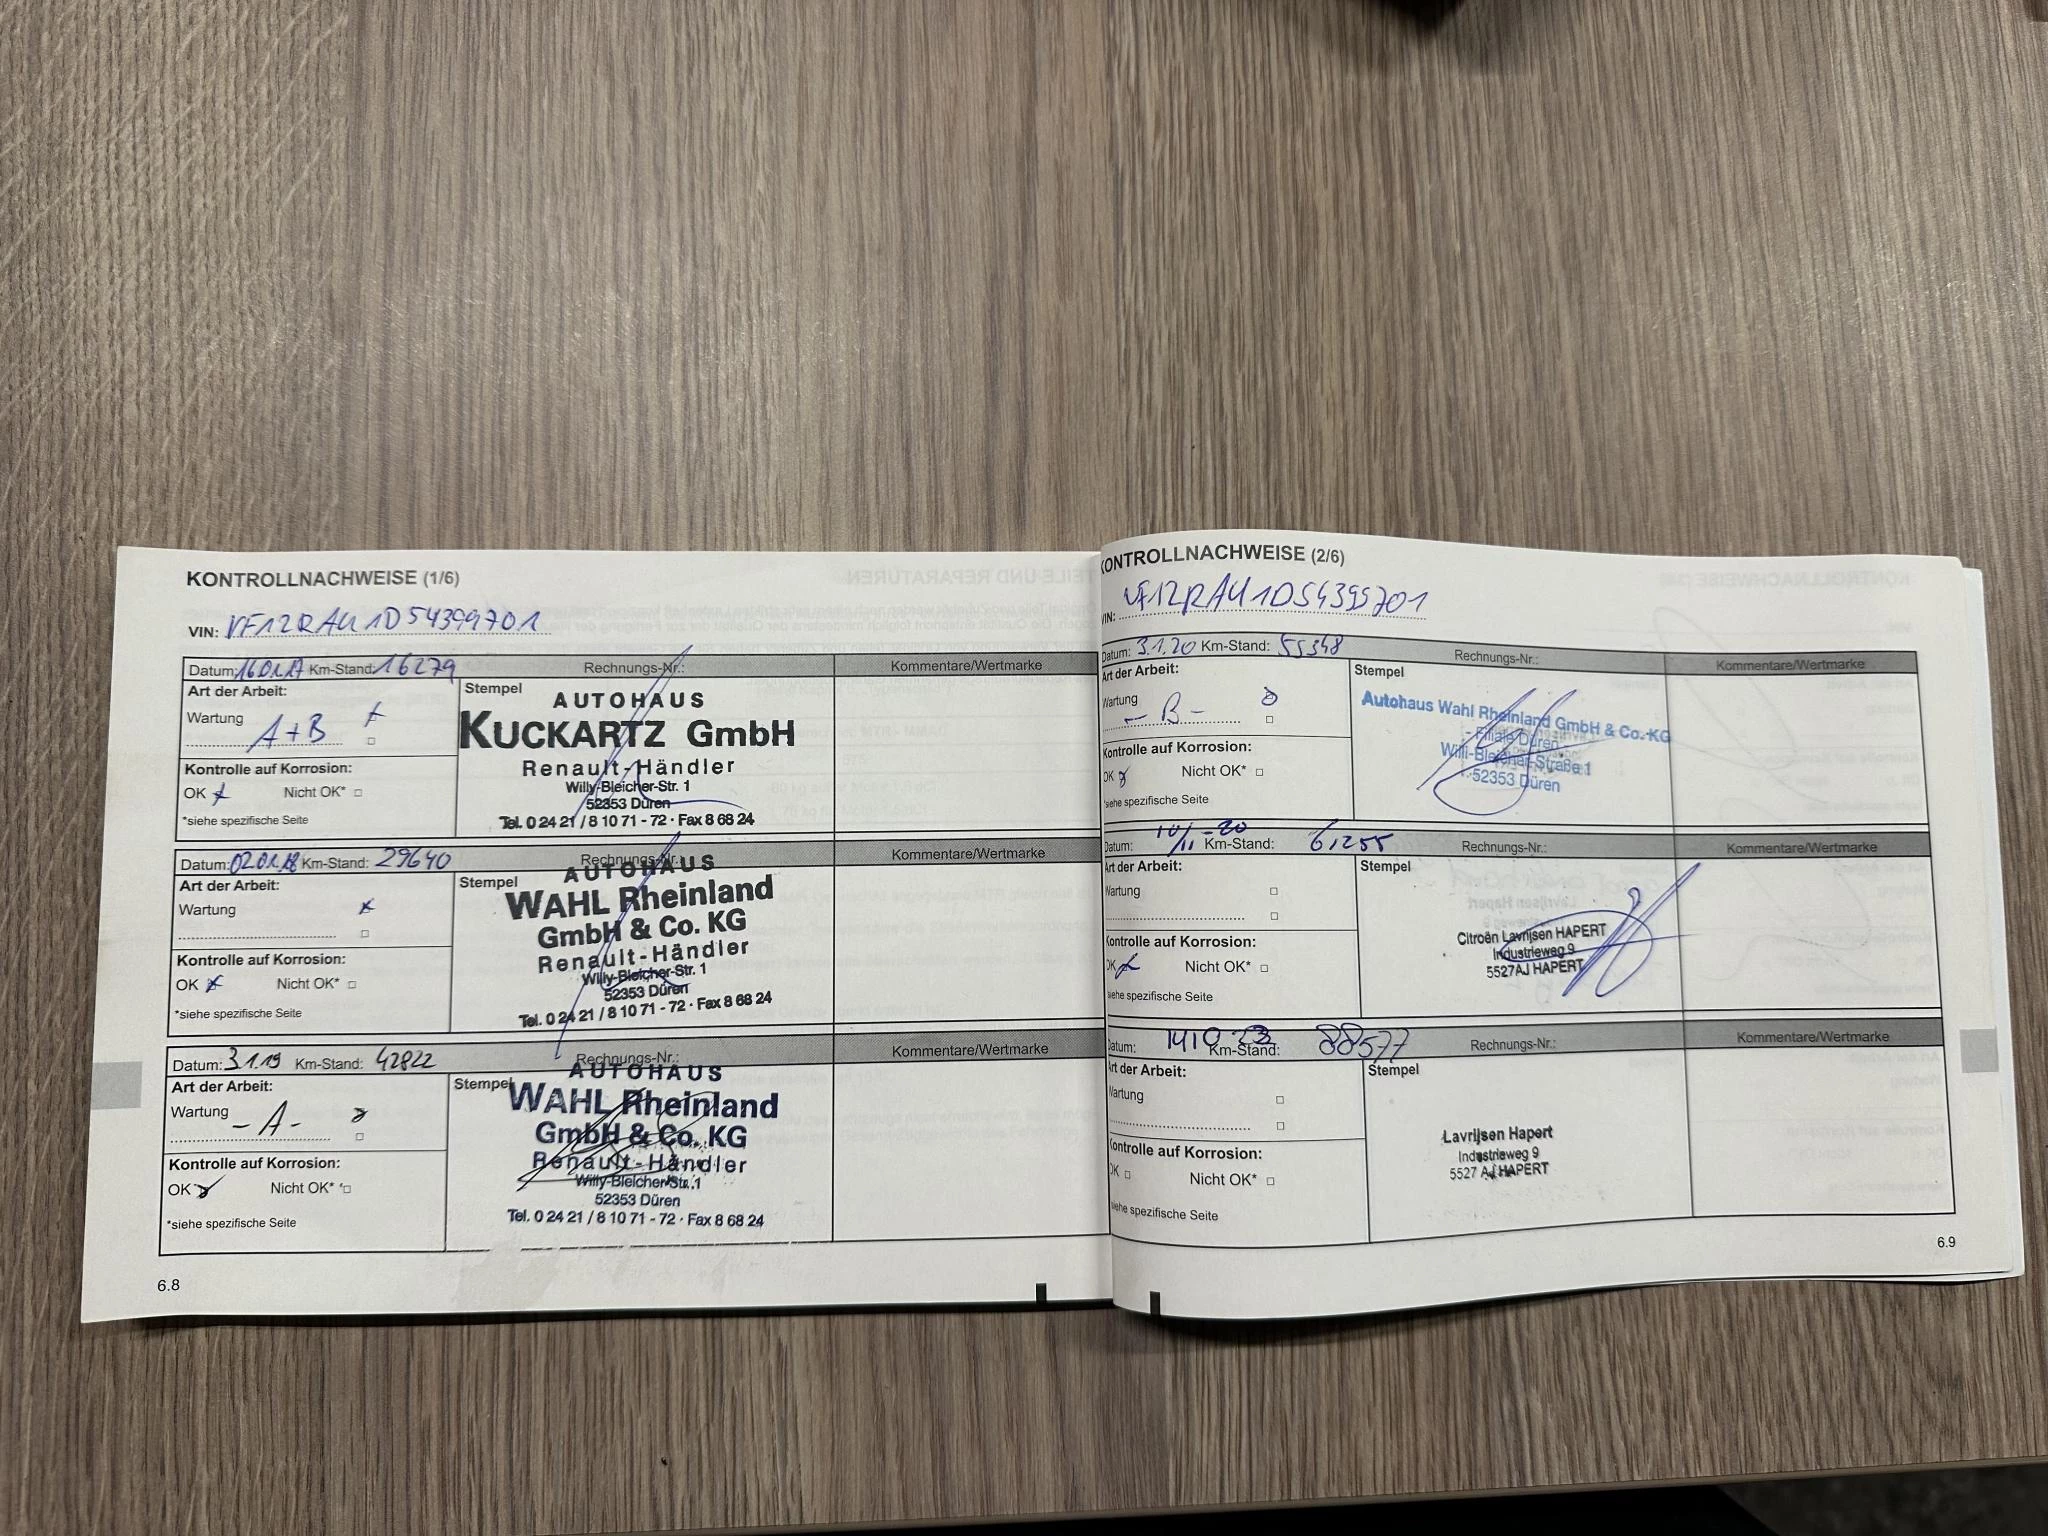 KONTROLLNACHWEISE (1/6)
VIN: VF12RAU1D54399701
Datum: 16.01.17 Km-Stand: 16279 Rechnungs-Nr.: Kommentare/Wertmarke
Art der Arbeit:
Wartung
A+B
Kontrolle auf Korrosion:
OK Nicht OK*
*siehe spezifische Seite
Stempel
AUTOHAUS
KUCKARTZ GmbH
Renault-Händler
Willy-Bleicher-Str. 1
52353 Düren
Tel. 0 24 21 / 8 10 71 - 72 · Fax 8 68 24
Datum: 02.01.18 Km-Stand: 29640 Rechnungs-Nr.: Kommentare/Wertmarke
Art der Arbeit:
Wartung
Kontrolle auf Korrosion:
OK Nicht OK*
*siehe spezifische Seite
Stempel
AUTOHAUS
WAHL Rheinland
GmbH & Co. KG
Renault-Händler
Willy-Bleicher-Str. 1
52353 Düren
Tel. 0 24 21 / 8 10 71 - 72 · Fax 8 68 24
Datum: 3.1.19 Km-Stand: 42822 Rechnungs-Nr.: Kommentare/Wertmarke
Art der Arbeit:
Wartung
- A -
Kontrolle auf Korrosion:
OK Nicht OK*
*siehe spezifische Seite
Stempel
AUTOHAUS
WAHL Rheinland
GmbH & Co. KG
Renault-Händler
Willy-Bleicher-Str. 1
52353 Düren
Tel. 0 24 21 / 8 10 71 - 72 · Fax 8 68 24
6.8
KONTROLLNACHWEISE (2/6)
VIN: VF12RAU1D54399701
Datum: 3.1.20 Km-Stand: 55348 Rechnungs-Nr.: Kommentare/Wertmarke
Art der Arbeit:
Wartung
- B -
Kontrolle auf Korrosion:
OK Nicht OK*
*siehe spezifische Seite
Stempel
Autohaus Wahl Rheinland GmbH & Co. KG
- Filiale Düren -
Willi-Bleicher-Straße 1
52353 Düren
Datum: Km-Stand: 61255 Rechnungs-Nr.: Kommentare/Wertmarke
Art der Arbeit:
Wartung
Kontrolle auf Korrosion:
OK Nicht OK*
*siehe spezifische Seite
Stempel
Citroën Lavrijsen HAPERT
Industrieweg 9
5527AJ HAPERT
Datum: 14 10 23 Km-Stand: 88577 Rechnungs-Nr.: Kommentare/Wertmarke
Art der Arbeit:
Wartung
Kontrolle auf Korrosion:
OK Nicht OK*
*siehe spezifische Seite
Stempel
Lavrijsen Hapert
Industrieweg 9
5527 AJ HAPERT
6.9